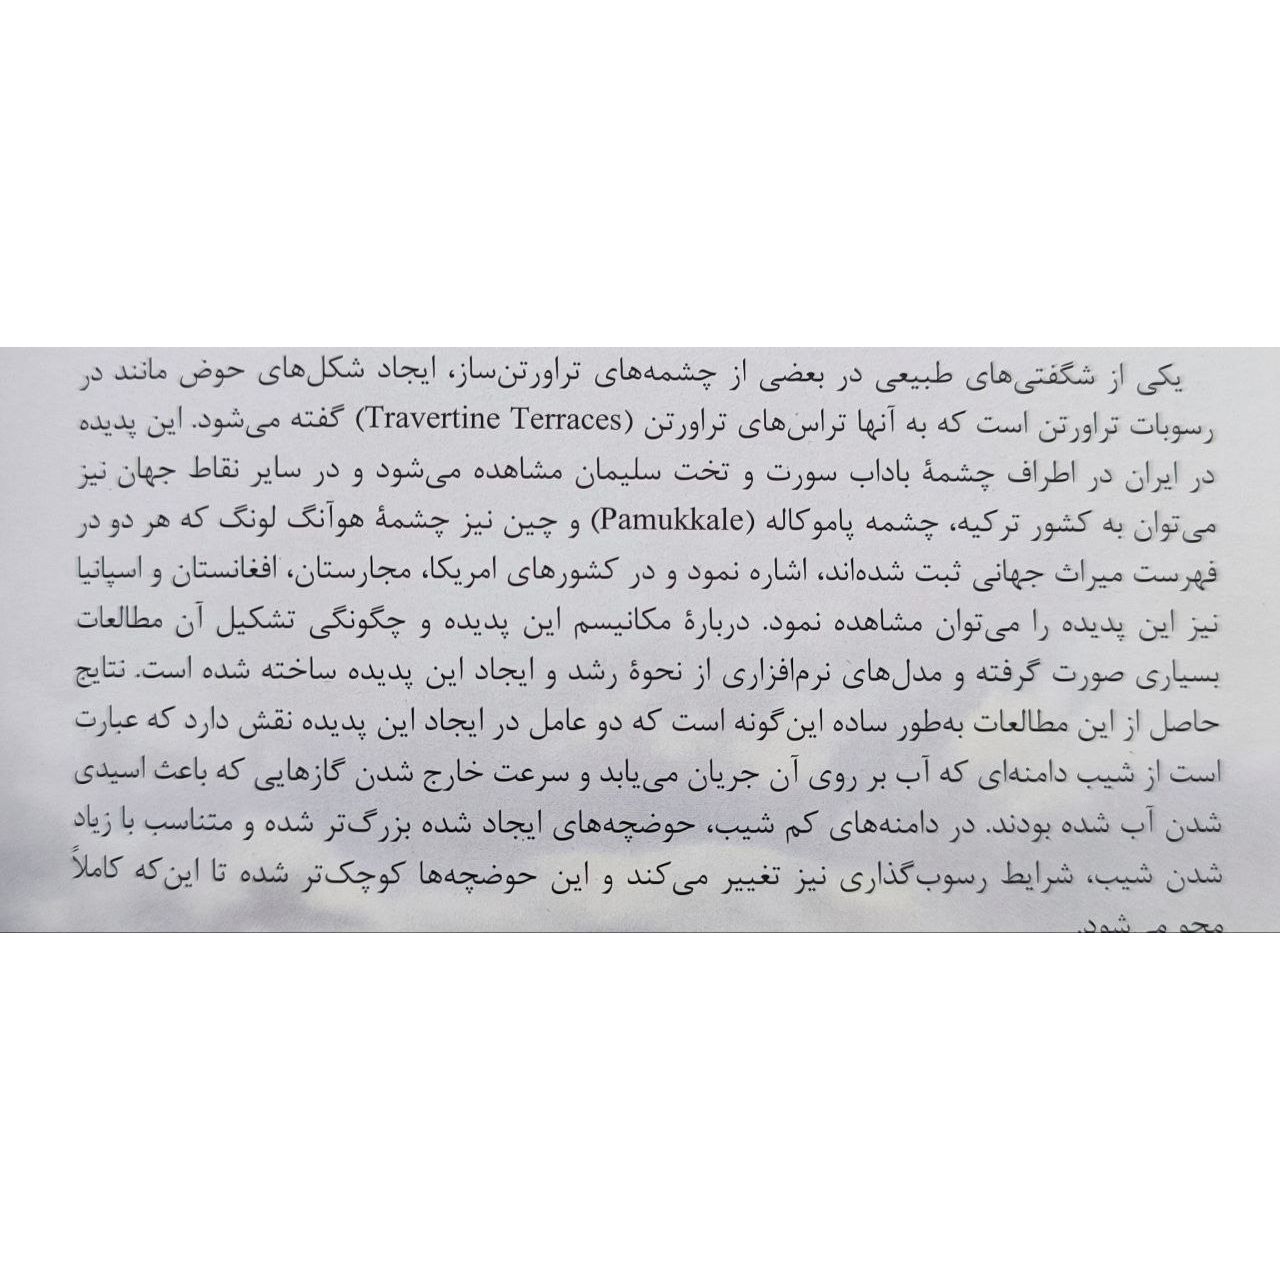 یکی از شگفتی‌های طبیعی در بعضی از چشمه‌های تراورتن‌ساز، ایجاد شکل‌های حوض مانند در
رسوبات تراورتن است که به آنها تراس‌های تراورتن (Travertine Terraces) گفته می‌شود. این پدیده
در ایران در اطراف چشمۀ باداب سورت و تخت سلیمان مشاهده می‌شود و در سایر نقاط جهان نیز
می‌توان به کشور ترکیه، چشمه پاموکاله (Pamukkale) و چین نیز چشمۀ هوآنگ لونگ که هر دو در
فهرست میراث جهانی ثبت شده‌اند، اشاره نمود و در کشورهای امریکا، مجارستان، افغانستان و اسپانیا
نیز این پدیده را می‌توان مشاهده نمود. دربارۀ مکانیسم این پدیده و چگونگی تشکیل آن مطالعات
بسیاری صورت گرفته و مدل‌های نرم‌افزاری از نحوۀ رشد و ایجاد این پدیده ساخته شده است. نتایج
حاصل از این مطالعات به‌طور ساده این‌گونه است که دو عامل در ایجاد این پدیده نقش دارد که عبارت
است از شیب دامنه‌ای که آب بر روی آن جریان می‌یابد و سرعت خارج شدن گازهایی که باعث اسیدی
شدن آب شده بودند. در دامنه‌های کم شیب، حوضچه‌های ایجاد شده بزرگ‌تر شده و متناسب با زیاد
شدن شیب، شرایط رسوب‌گذاری نیز تغییر می‌کند و این حوضچه‌ها کوچک‌تر شده تا این‌که کاملاً
محو می‌شود.